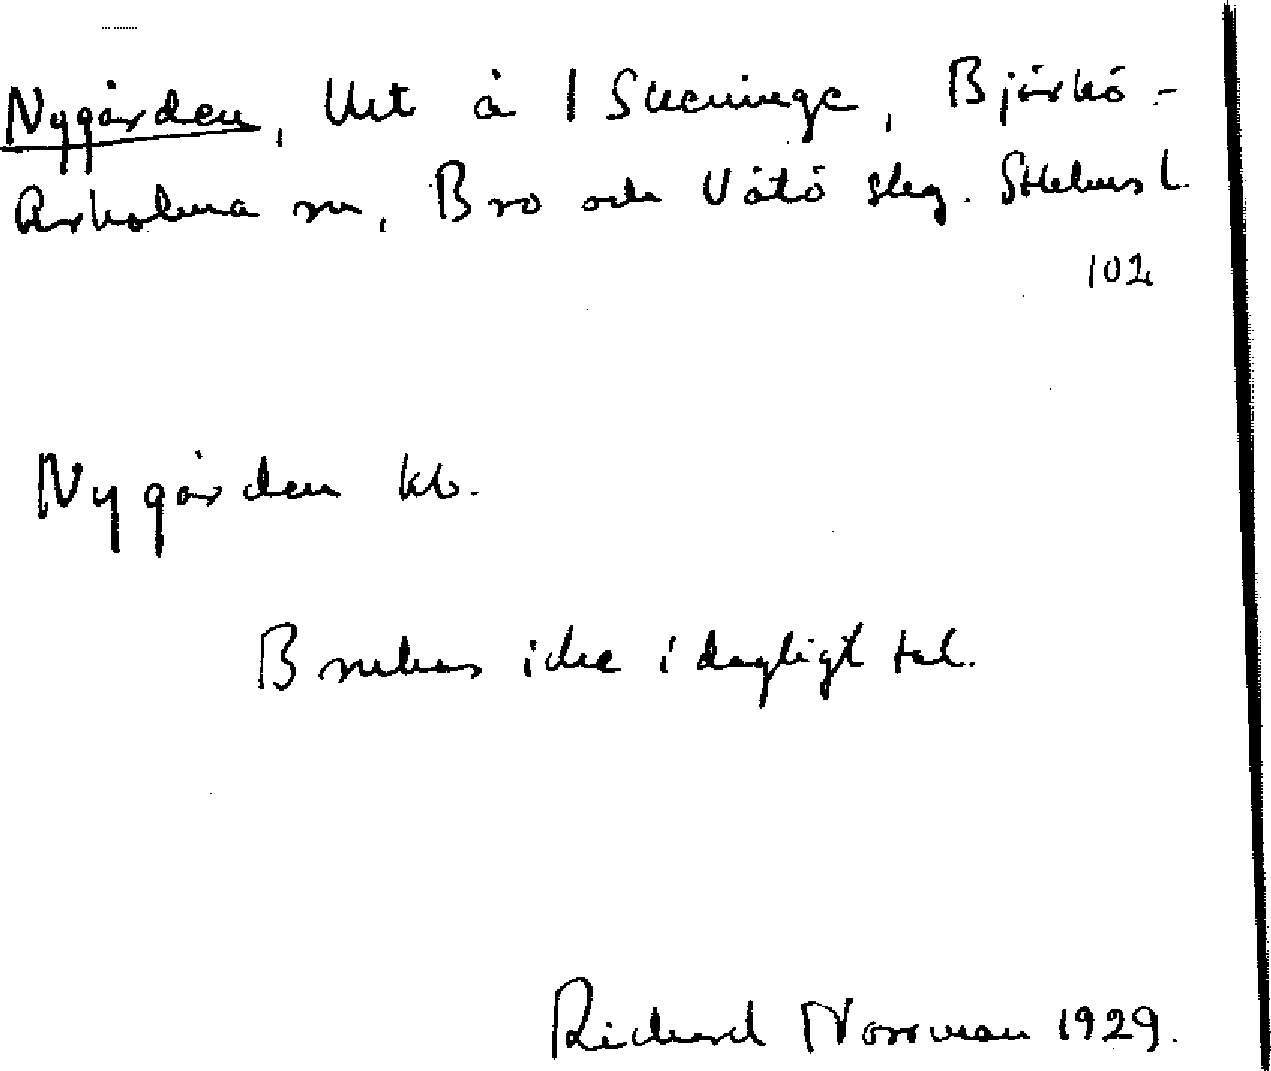 Nygården, Urt å 1 Skeninge, Björkö-
Arholma sn, Bro och Vätö skg. Sthlms l.
102
Nygården kb.
Brukas icke i dagligt tal.
Richard Norrman 1929.